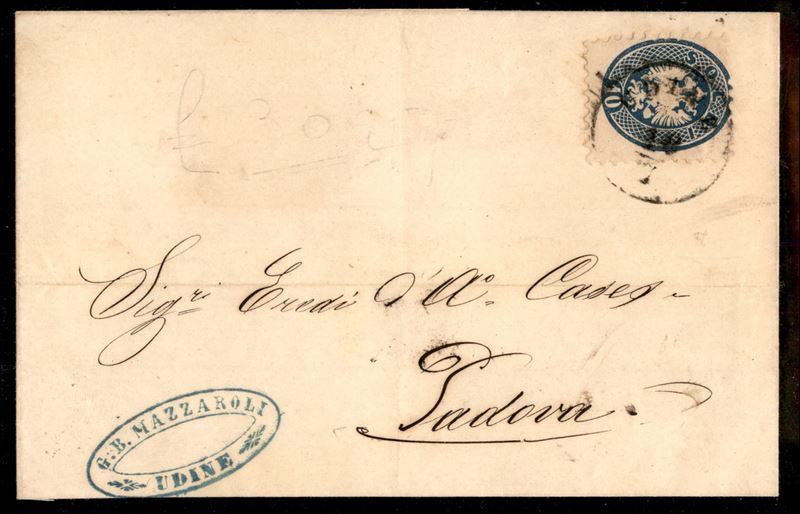 10 SOLDI
UDINE
18
7
Sig.ri Eredi d'A.o Cases
Padova
G. B. MAZZAROLI
UDINE